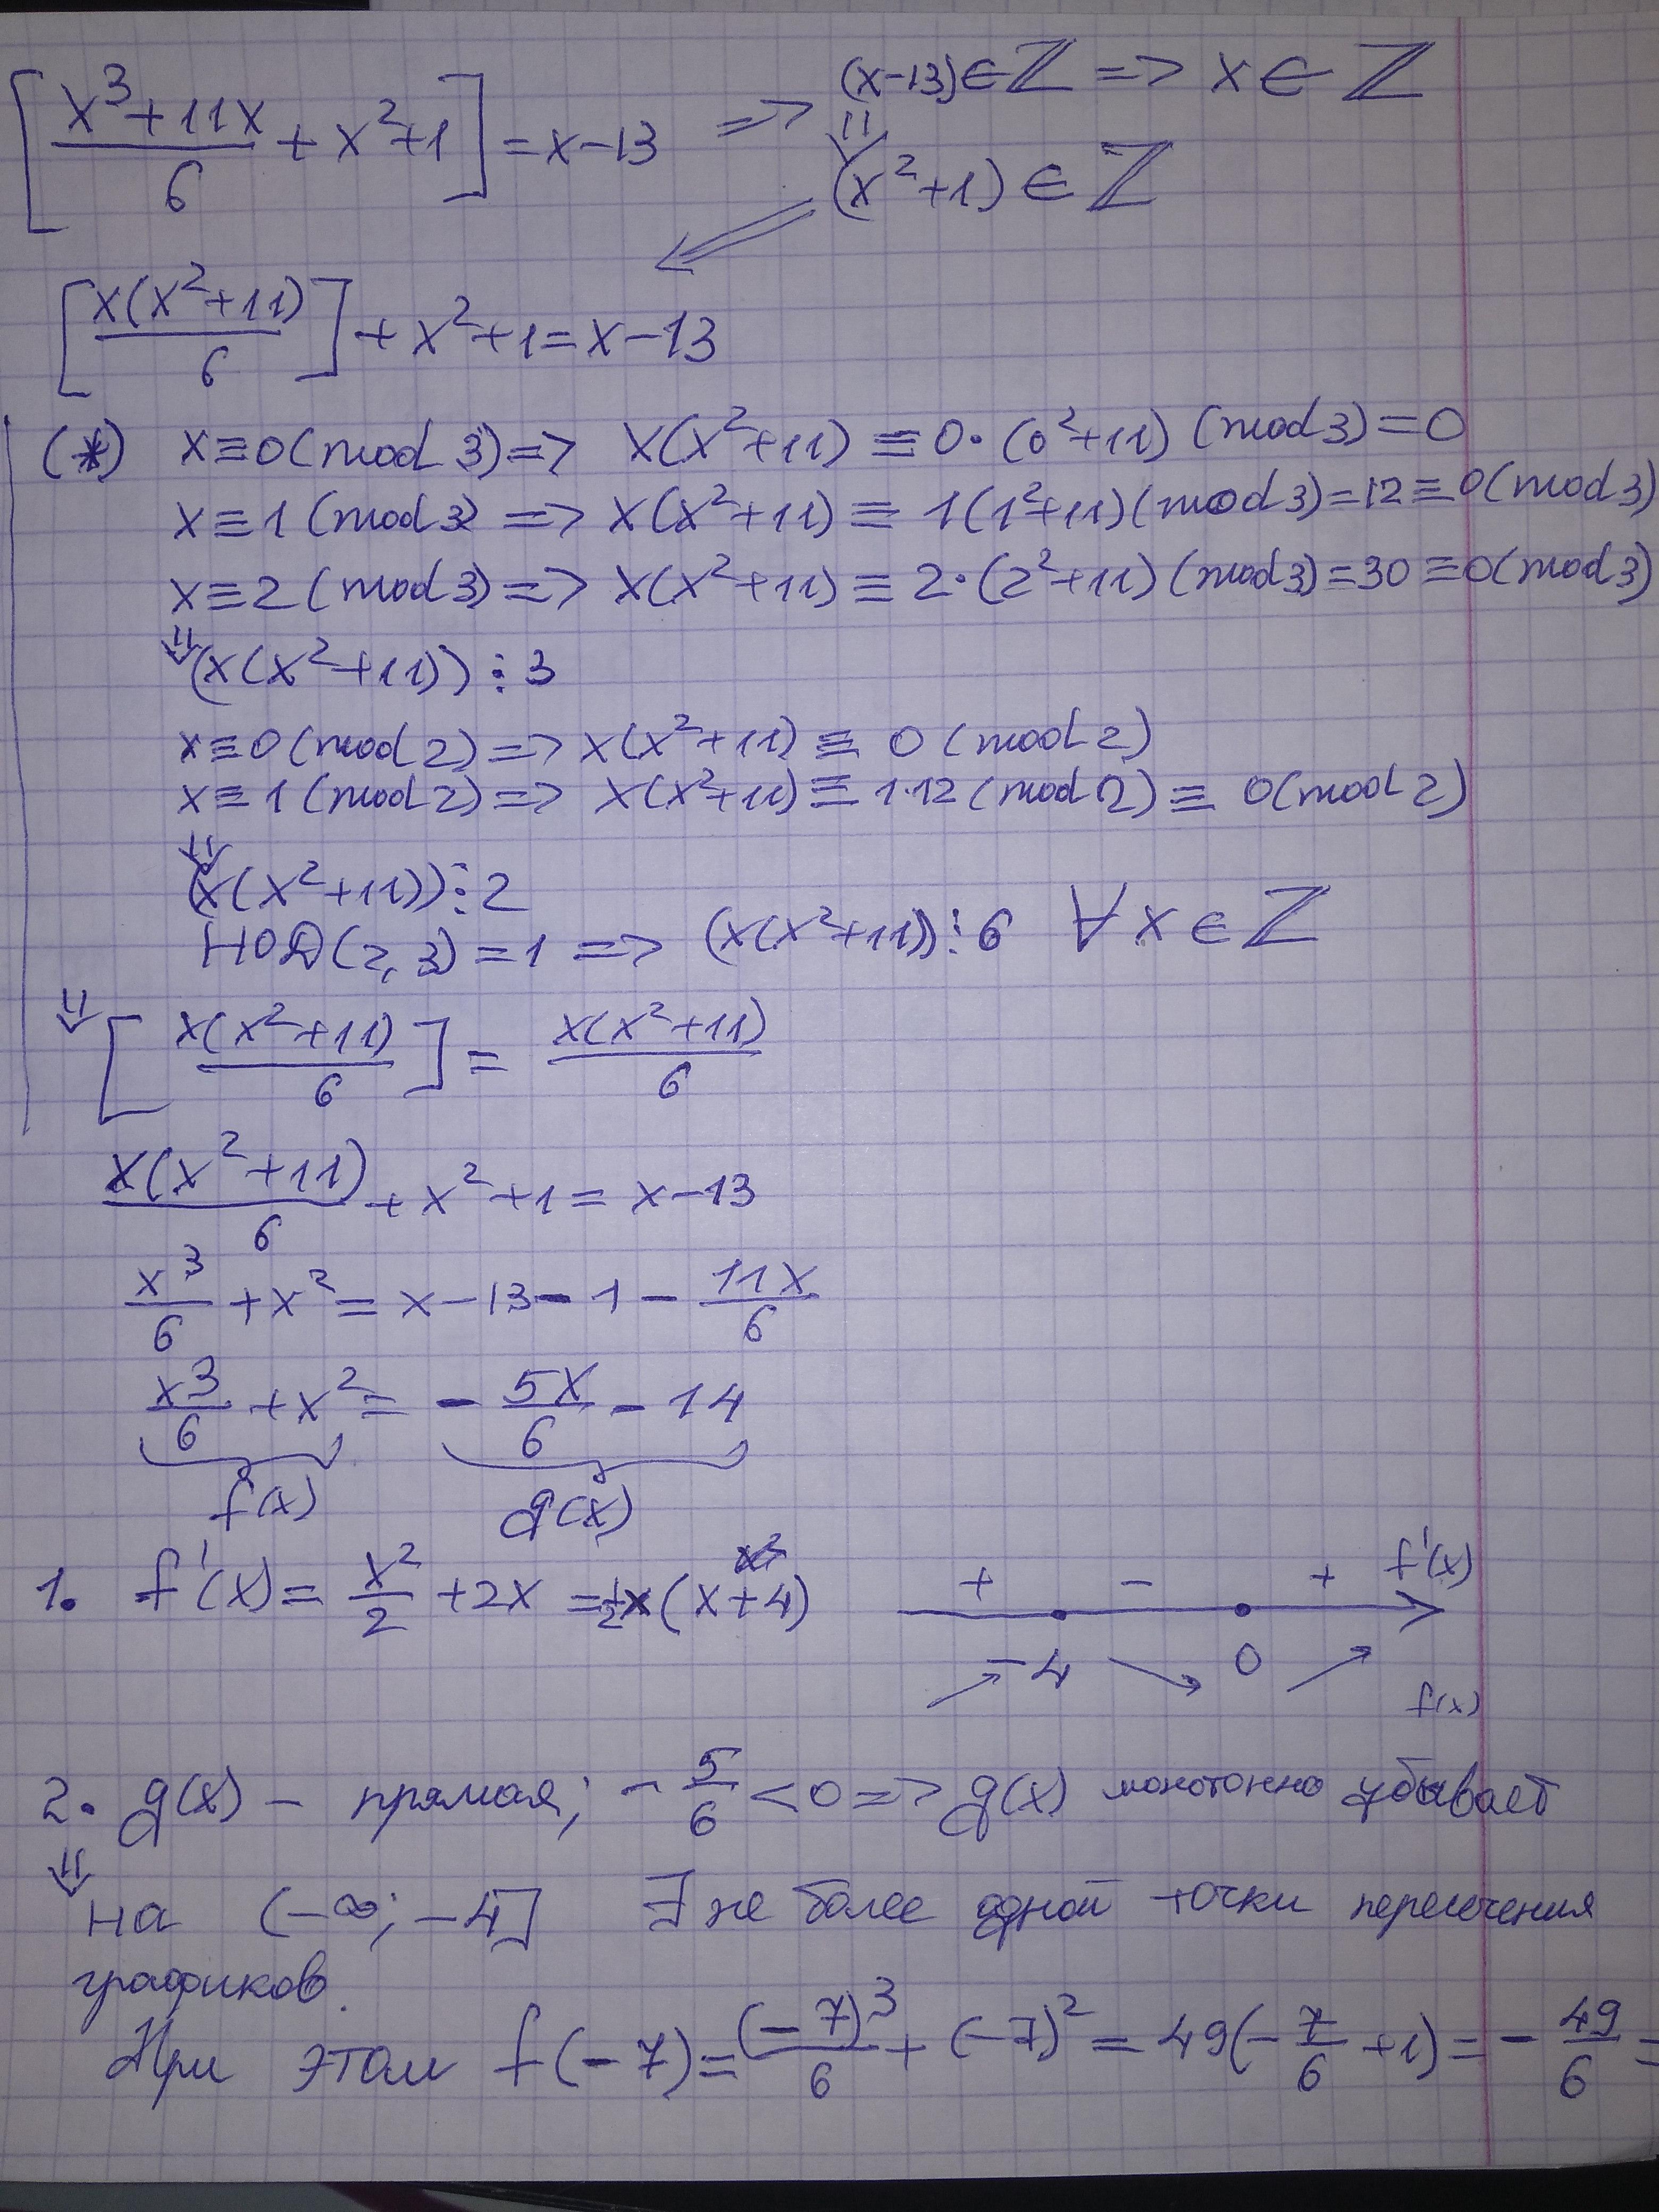 [(x³+11x)/6 + x²+1] = x-13 => (x-13)∈ℤ => x∈ℤ
⇓
(x²+1)∈ℤ
[x(x²+11)/6] + x²+1 = x-13
(*) x≡0(mod 3)=> x(x²+11) ≡ 0·(0²+11) (mod 3)=0
x≡1(mod 3) => x(x²+11) ≡ 1(1²+11)(mod 3)=12≡0(mod 3)
x≡2(mod 3)=> x(x²+11) ≡ 2·(2²+11)(mod 3)=30≡0(mod 3)
⇓ (x(x²+11))⋮3
x≡0(mod 2)=> x(x²+11) ≡ 0(mod 2)
x≡1(mod 2)=> x(x²+11) ≡ 1·12(mod 2) ≡ 0(mod 2)
⇓
(x(x²+11))⋮2
НОД(2,3)=1 => (x(x²+11))⋮6 ∀x∈ℤ
⇓ [x(x²+11)/6] = x(x²+11)/6
x(x²+11)/6 + x²+1 = x-13
x³/6 + x² = x-13-1-11x/6
x³/6 + x² = -5x/6 - 14
f(x) g(x)
1. f'(x) = x²/2 + 2x = ½x(x+4)
+ - + f'(x)
-4 0
f(x)
2. g(x) - прямая; -5/6 < 0 => g(x) монотонно убывает
⇓ на (-∞; -4] ∃ не более одной точки пересечения
графиков.
При этом f(-7) = (-7)³/6 + (-7)² = 49(-7/6 + 1) = -49/6 =